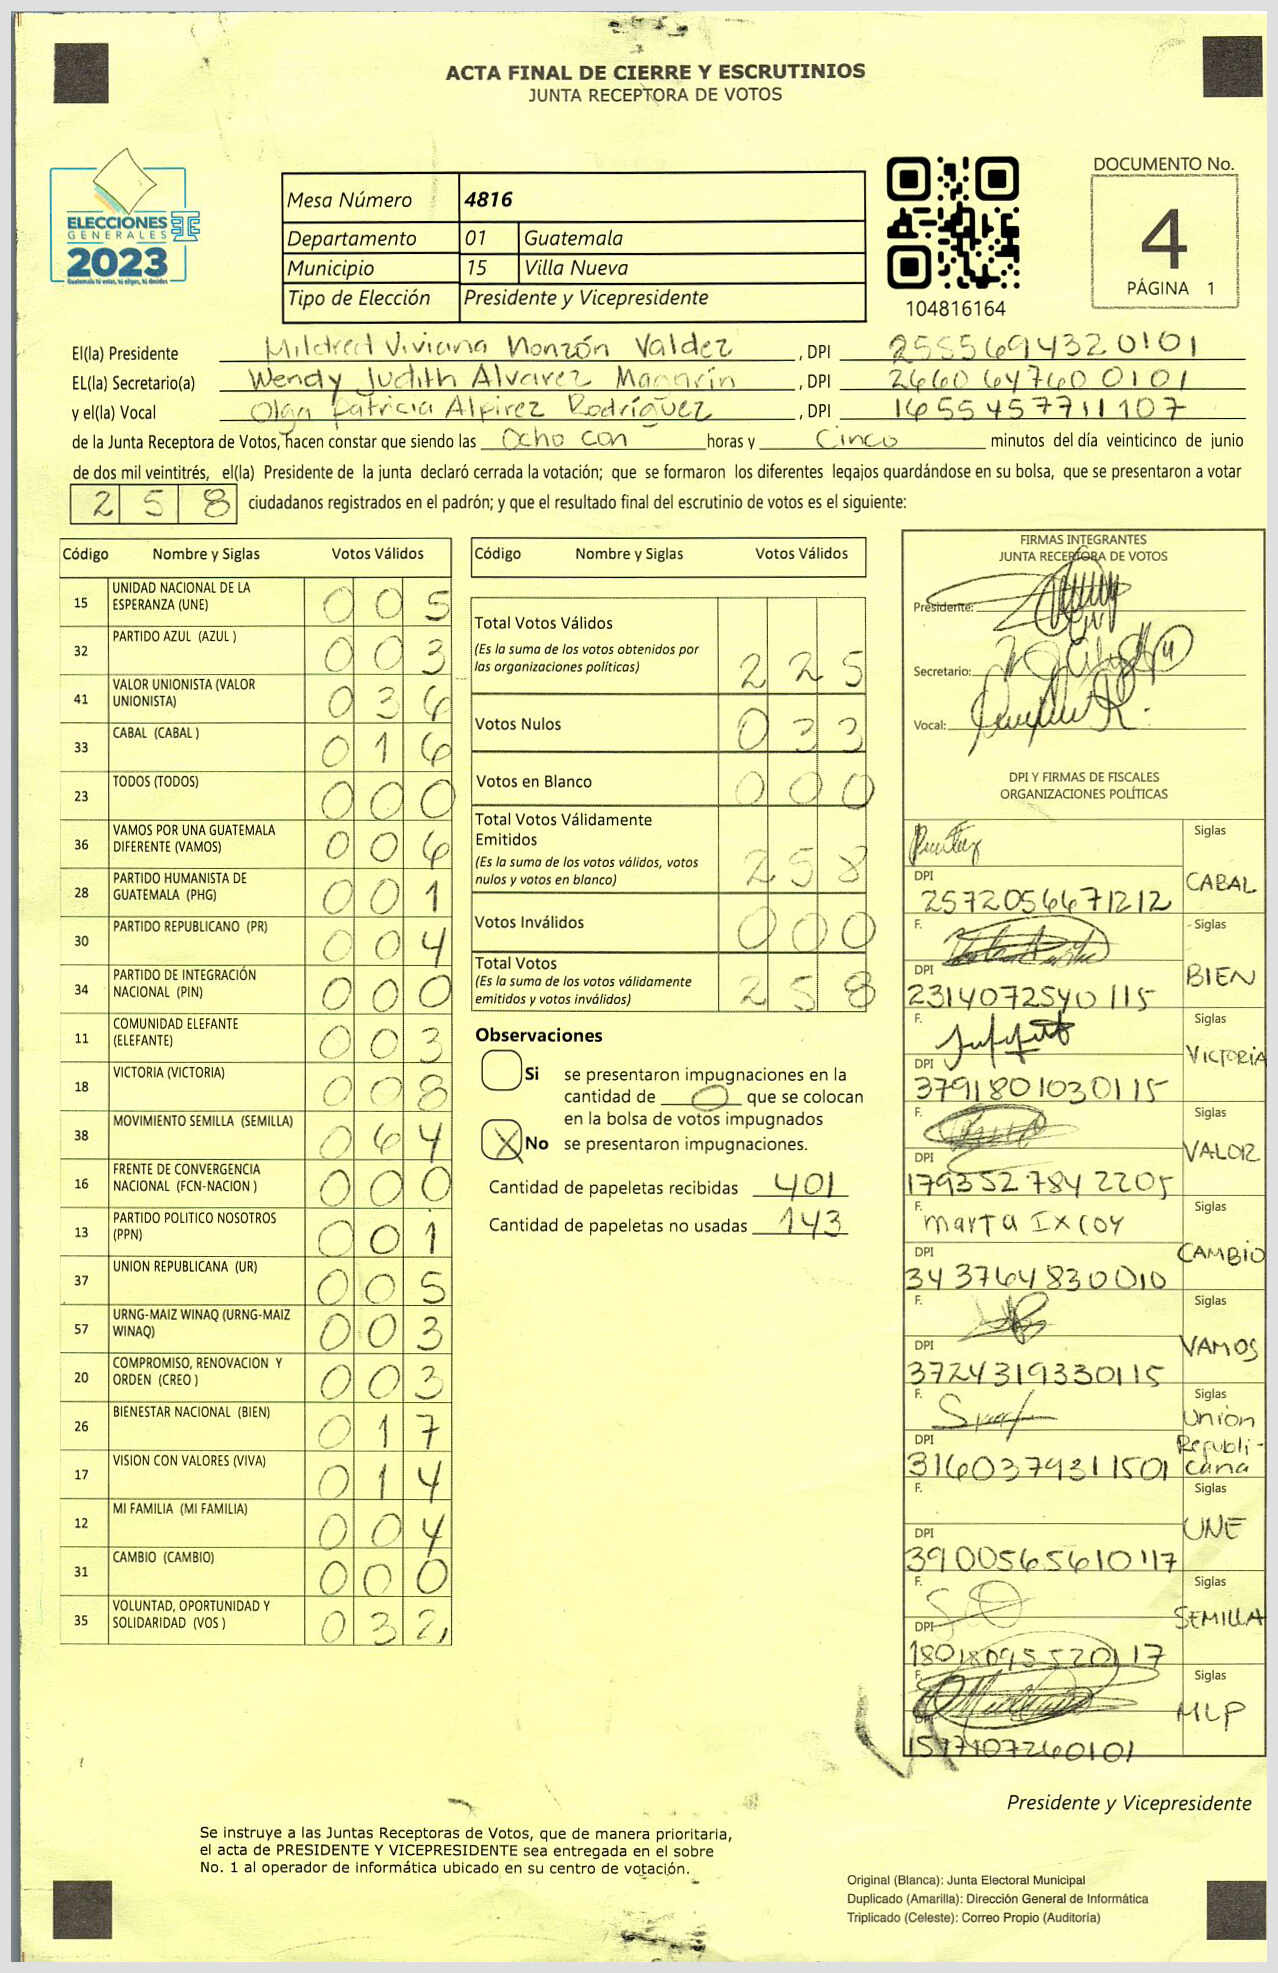 ACTA FINAL DE CIERRE Y ESCRUTINIOS
JUNTA RECEPTORA DE VOTOS
ELECCIONES
GENERALES
2023
Guatemala tú votas, tú eliges, tú decides
Mesa Número 4816
Departamento 01 Guatemala
Municipio 15 Villa Nueva
Tipo de Elección Presidente y Vicepresidente
104816164
DOCUMENTO No.
4
PÁGINA 1
El(la) Presidente Mildred Viviana Monzón Valdez , DPI 2555694320101
EL(la) Secretario(a) Wendy Judith Alvarez , DPI 2660647600101
y el(la) Vocal Olga Patricia Alpirez Rodríguez , DPI 1655457711107
de la Junta Receptora de Votos, hacen constar que siendo las Ocho con horas y Cinco minutos del día veinticinco de junio
de dos mil veintitrés, el(la) Presidente de la junta declaró cerrada la votación; que se formaron los diferentes legajos guardándose en su bolsa, que se presentaron a votar
258 ciudadanos registrados en el padrón; y que el resultado final del escrutinio de votos es el siguiente:
Código Nombre y Siglas Votos Válidos
15 UNIDAD NACIONAL DE LA ESPERANZA (UNE) 005
32 PARTIDO AZUL (AZUL ) 003
41 VALOR UNIONISTA (VALOR UNIONISTA) 036
33 CABAL (CABAL ) 016
23 TODOS (TODOS) 000
36 VAMOS POR UNA GUATEMALA DIFERENTE (VAMOS) 006
28 PARTIDO HUMANISTA DE GUATEMALA (PHG) 001
30 PARTIDO REPUBLICANO (PR) 004
34 PARTIDO DE INTEGRACIÓN NACIONAL (PIN) 000
11 COMUNIDAD ELEFANTE (ELEFANTE) 003
18 VICTORIA (VICTORIA) 008
38 MOVIMIENTO SEMILLA (SEMILLA) 064
16 FRENTE DE CONVERGENCIA NACIONAL (FCN-NACION ) 000
13 PARTIDO POLITICO NOSOTROS (PPN) 001
37 UNION REPUBLICANA (UR) 005
57 URNG-MAIZ WINAQ (URNG-MAIZ WINAQ) 003
20 COMPROMISO, RENOVACION Y ORDEN (CREO ) 003
26 BIENESTAR NACIONAL (BIEN) 017
17 VISION CON VALORES (VIVA) 014
12 MI FAMILIA (MI FAMILIA) 004
31 CAMBIO (CAMBIO) 000
35 VOLUNTAD, OPORTUNIDAD Y SOLIDARIDAD (VOS ) 032
Código Nombre y Siglas Votos Válidos
Total Votos Válidos 225
(Es la suma de los votos obtenidos por
las organizaciones políticas)
Votos Nulos 033
Votos en Blanco 000
Total Votos Válidamente
Emitidos 258
(Es la suma de los votos válidos, votos
nulos y votos en blanco)
Votos Inválidos 000
Total Votos 258
(Es la suma de los votos válidamente
emitidos y votos inválidos)
Observaciones
Si se presentaron impugnaciones en la
cantidad de 0 que se colocan
en la bolsa de votos impugnados
X No se presentaron impugnaciones.
Cantidad de papeletas recibidas 401
Cantidad de papeletas no usadas 143
FIRMAS INTEGRANTES
JUNTA RECEPTORA DE VOTOS
Presidente:
Secretario:
Vocal:
DPI Y FIRMAS DE FISCALES
ORGANIZACIONES POLÍTICAS
Siglas
DPI
2572056671212 CABAL
F. Siglas
DPI
2314072540115 BIEN
F. Siglas
DPI
3791801030115 VICTORIA
F. Siglas
DPI
1793527842205 VALOR
F. Marta Ixcoy Siglas
DPI
3437648300010 CAMBIO
F. Siglas
DPI
3724319330115 VAMOS
F. Siglas
DPI
3160379311501 Unión Republicana
F. Siglas
DPI
3900565610117 UNE
F. Siglas
DPI
18018095520117 SEMILLA
F. Siglas
DPI
1577107260101 MLP
Presidente y Vicepresidente
Se instruye a las Juntas Receptoras de Votos, que de manera prioritaria,
el acta de PRESIDENTE Y VICEPRESIDENTE sea entregada en el sobre
No. 1 al operador de informática ubicado en su centro de votación.
Original (Blanca): Junta Electoral Municipal
Duplicado (Amarilla): Dirección General de Informática
Triplicado (Celeste): Correo Propio (Auditoría)